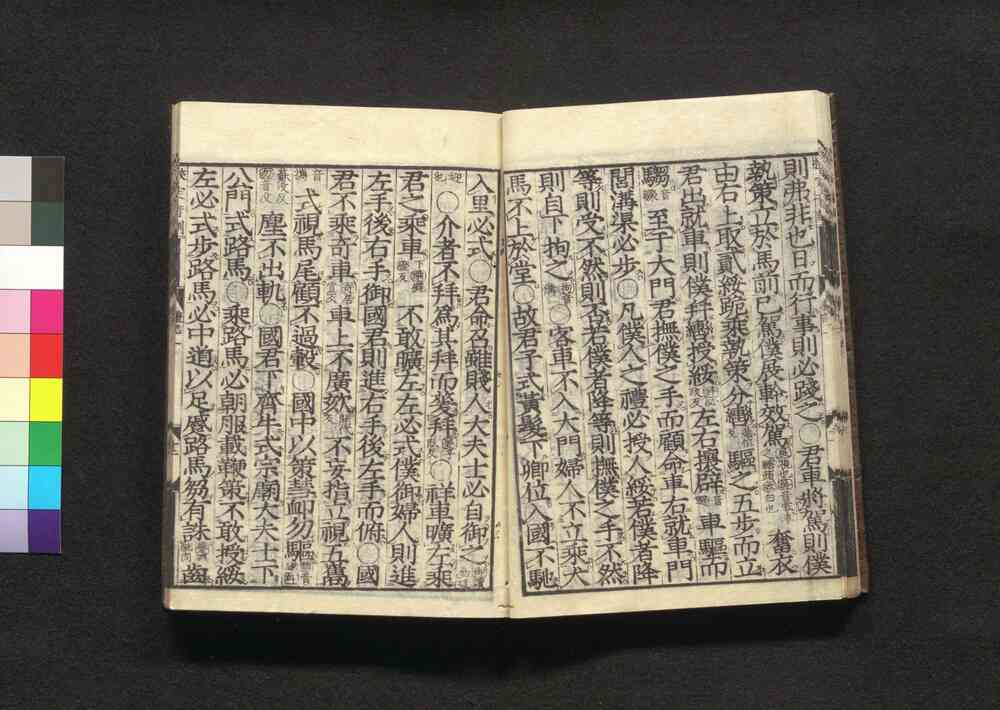 則弗非也日而行事則必踐之○君車將駕則僕
執策立於馬前已駕僕展軨效駕奮衣
由右上取貳綏跪乘執策分轡驅之五步而立
君出就車則僕幷轡授綏左右攘辟車驅而
騶至于大門君撫僕之手而顧命車右就車門
閭溝渠必步○凡僕人之禮必授人綏若僕者降
等則受不然則否若僕者降等則撫僕之手不然
則自下拘之○客車不入大門婦人不立乘犬
馬不上於堂○故君子式黃髮下卿位入國不馳
入里必式○君命召雖賤人大夫士必自御之
○介者不拜爲其拜而蓌拜○祥車曠左乘
君之乘車不敢曠左左必式僕御婦人則進
左手後右手御國君則進右手後左手而俯○國
君不乘奇車車上不廣欬不妄指立視五巂
式視馬尾顧不過轂○國中以策彗卹勿驅
塵不出軌○國君下齊牛式宗廟大夫士下
公門式路馬○乘路馬必朝服載鞭策不敢授綏
左必式步路馬必中道以足蹙路馬芻有誅齒